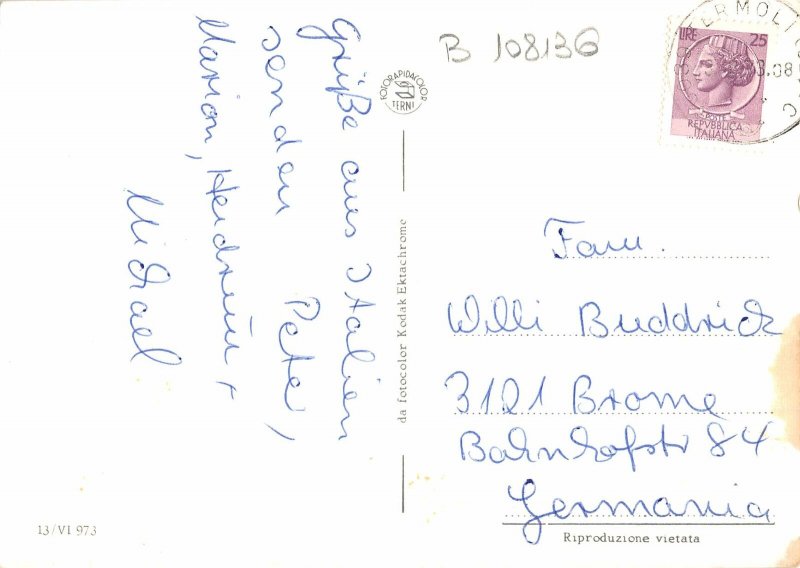 Grüße aus Italien
senden Peter,
Marion, Heidrun +
Michael
13/VI 973
FOTORAPIDACOLOR
TERNI
da fotocolor Kodak Ektachrome
B 108136
LIRE 25
POSTE
REPVBBLICA
ITALIANA
TERMOLI
Fam.
Willi Buddrick
3121 Brome
Bahnhofstr 84
Germania
Riproduzione vietata